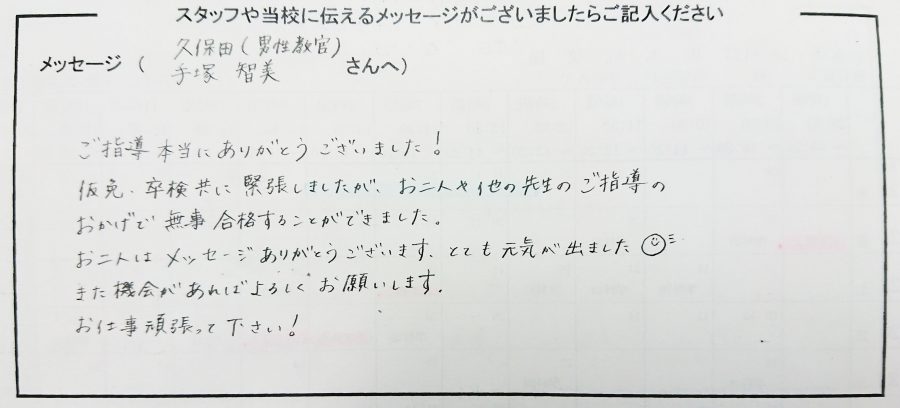 スタッフや当校に伝えるメッセージがございましたらご記入ください
久保田(男性教官)
メッセージ ( 手塚 智美 さんへ)
ご指導本当にありがとうございました!
仮免、卒検共に緊張しましたが、お二人や他の先生のご指導の
おかげで無事合格することができました。
お二人はメッセージありがとうございます、とても元気が出ました
また機会があればよろしくお願いします。
お仕事頑張って下さい!